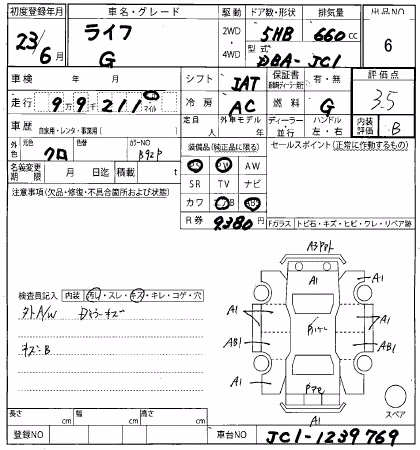 初度登録年月 車名・グレード 駆動 ドア数・形状 排気量 出品NO
23/6月 ライフ G 2WD・4WD 5HB 660cc 6
型式 DBA-JC1
車検 年 月 シフト IAT 保証書 有・無 評価点 3.5
走行 99211 マイル 冷房 AC 燃料 G
車歴 自家用・レンタ・事業用( ) 定員 人 外車モデル 年 ディーラー・並行 ハンドル 左・右 内装評価 B
外色 元色 クロ 色替 カラーNO B92P
装備品(純正品に限る) セールスポイント(正常に作動するもの)
名義変更期限 月 日迄 積載 t
PS PW AW
SR TV ナビ
カワ エアB ABS
R券 9380円
注意事項(欠品・修復・不具合箇所および状態)
Fガラス トビ石・キズ・ヒビ・ワレ・リペア跡
検査員記入 内装 汚れ・スレ・キズ・キレ・コゲ・穴
外A/W
キズ・B
A1
A1
A1
A1
A1
AB1
AB1
A1
A1
スペア
長さ cm 幅 cm 高さ cm
登録NO 車台NO JC1-1239769